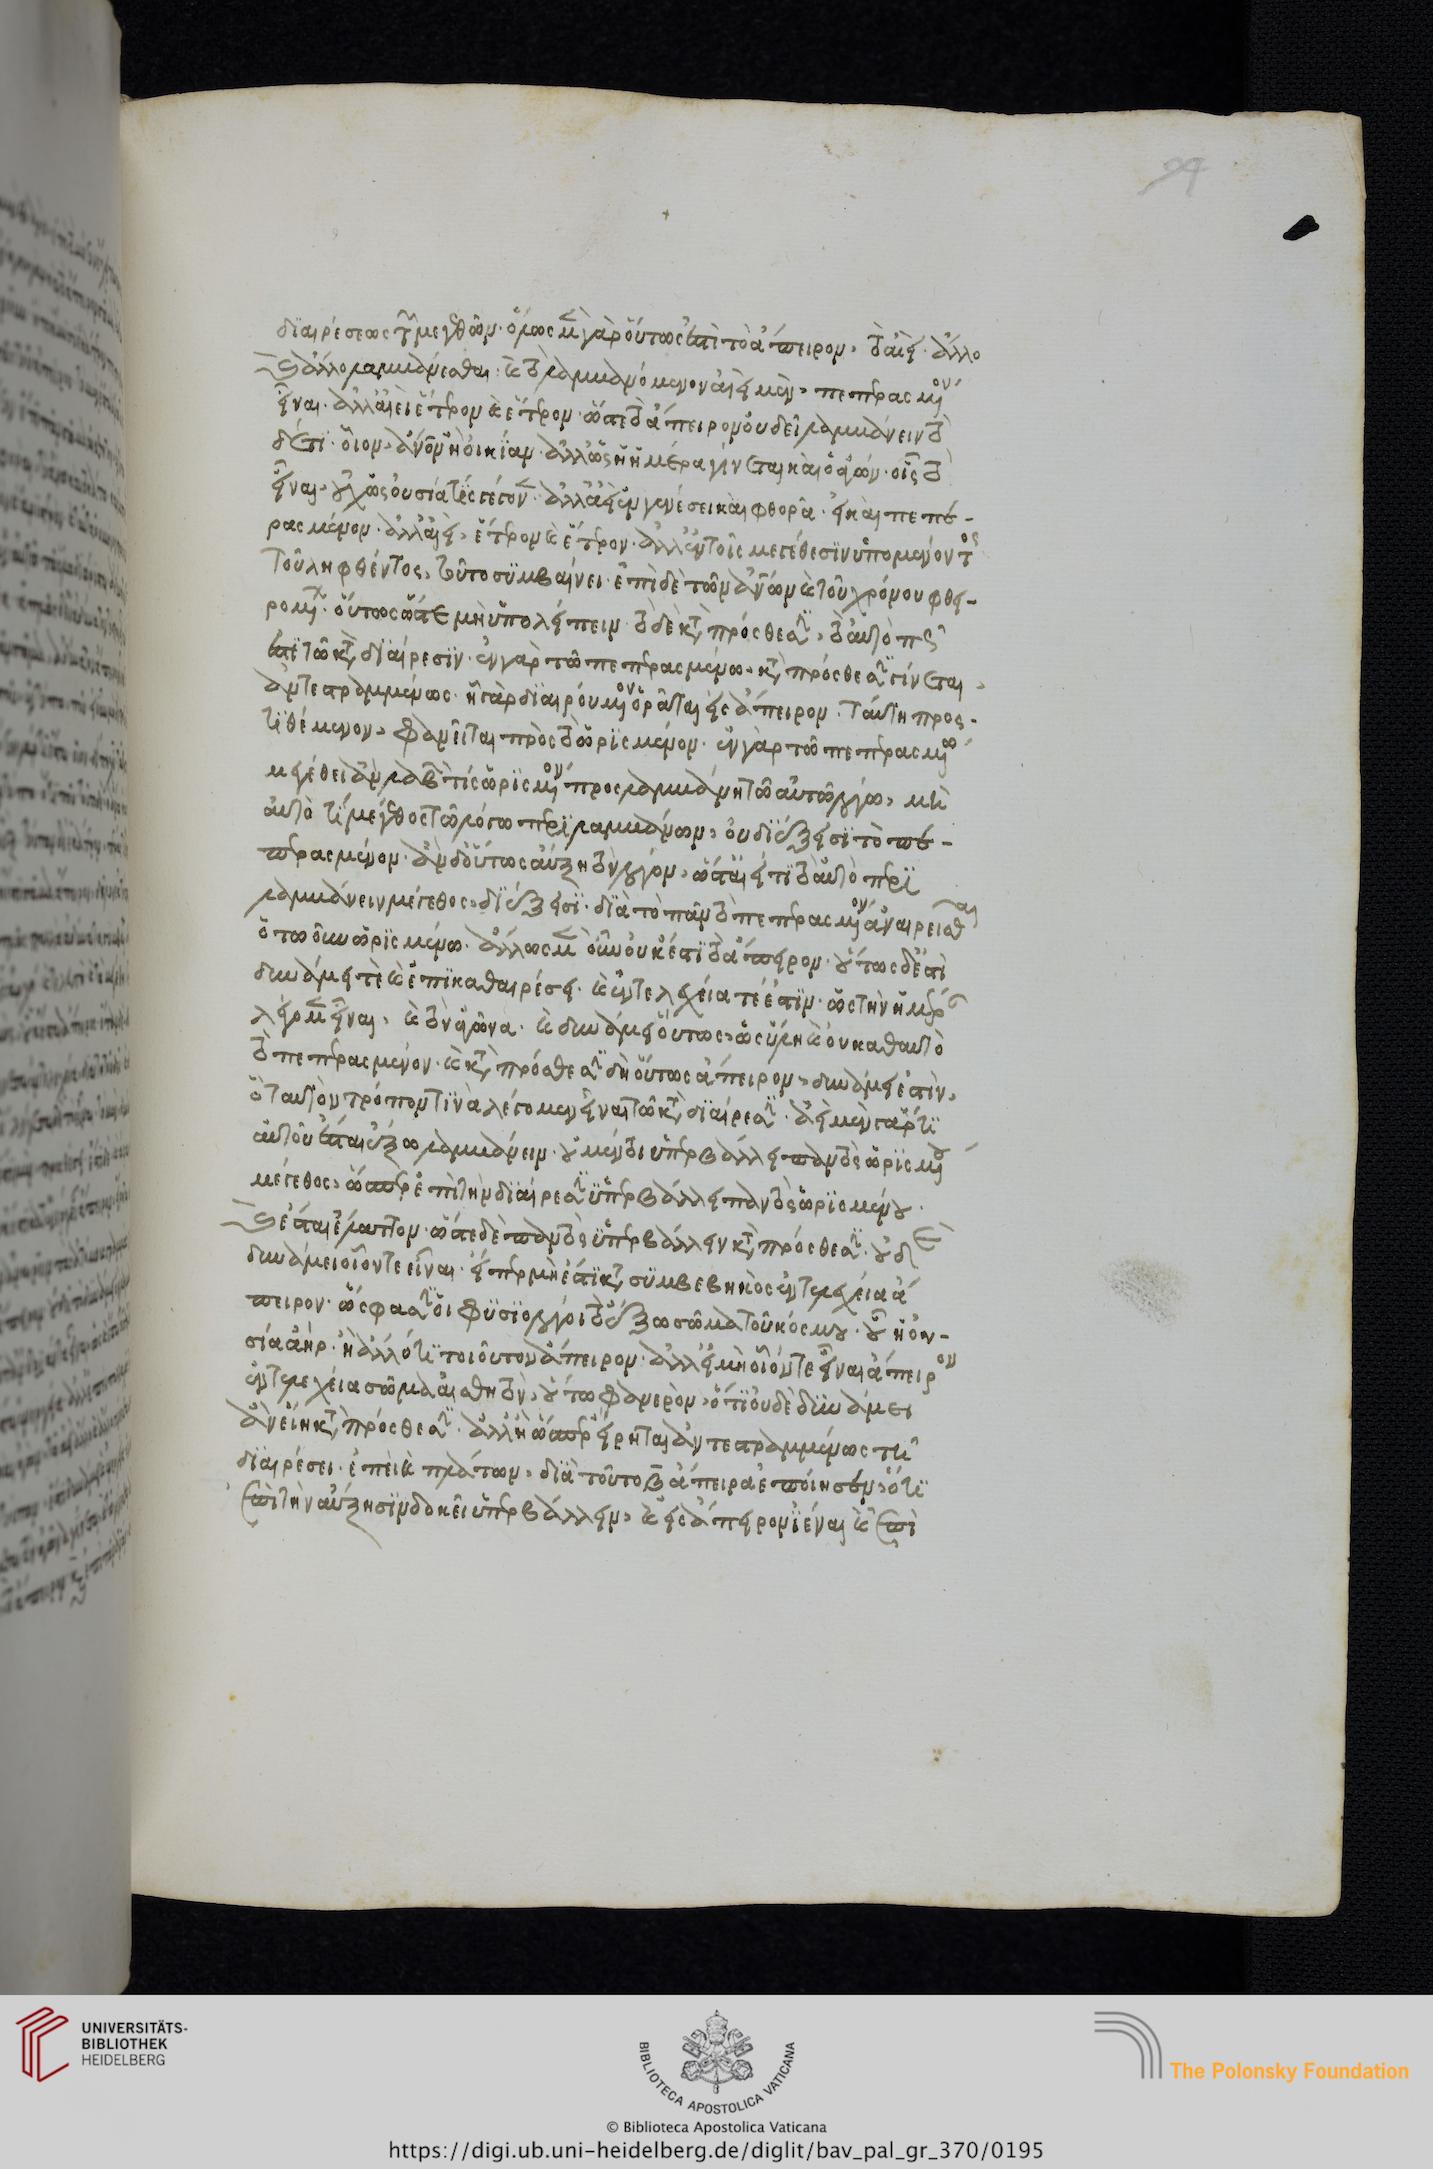 διαιρέσεως τῶν μεγεθῶν· ὅλως μὲν γὰρ οὕτως ἐστὶ τὸ ἄπειρον, τῶ ἀεὶ· ἄλλο
καὶ ἄλλο λαμβάνεσθαι· καὶ τὸ λαμβανόμενον ἀεὶ εἶ μὲν, πεπερασμένον
εἶναι· ἀλλ' ἀεὶ ἕτερον καὶ ἕτερον· ὥστε τὸ ἄπειρον οὐ δεῖ λαμβάνειν τὸ
δέ τι· οἷον, ἄνθρωπον ἢ οἰκίαν· ἀλλ' ὡς ἡ ἡμέρα γίνεται καὶ ὁ ἀγών· οἷς τὸ
εἶναι, οὐχ ὡς οὐσία τὶς γέγονεν· ἀλλ' ἀεὶ ἐν γενέσει καὶ φθορᾶ· εἰ καὶ πεπε-
ρασμένον· ἀλλ' ἀεὶ, ἕτερον καὶ ἕτερον· ἀλλ' ἐν τοῖς μεγέθεσιν ὑπομένοντος
τοῦ ληφθέντος, τοῦτο συμβαίνει· ἐπὶ δὲ τῶν ἀνθρώπων καὶ τοῦ χρόνου φθει-
ρομένων· οὕτως ὥστε μὴ ὑπολείπειν· τὸ δὲ κατὰ πρόσθεσιν, τὸ αὐτὸ πως
ἐστὶ τῶ κατὰ διαίρεσιν· ἐν γὰρ τῶ πεπερασμένω, κατὰ πρόσθεσιν γίνεται,
ἀντεστραμμένως· ἧ γὰρ διαιρούμενον ὁρᾶται εἰς ἄπειρον· ταύτη προς-
τιθέμενον, φανεῖται πρὸς τὸ ὡρισμένον· ἐν γὰρ τῶ πεπερασμένω
μεγέθει ἂν λαβών τις ὡρισμένον προσλαμβάνη τῶ αὐτῶ λόγω, μὴ
αὐτὸ τὶ μέγεθος τῶ λόγω περιλαμβάνων, οὐ διέξεισι τὸ πε-
περασμένον· ἂν δ' οὕτως αὔξη τὸν λόγον, ὥστ' ἀεί τι τὸ αὐτὸ περι
λαμβάνειν μέγεθος, διέξεισι· διὰ τὸ πᾶν τὸ πεπερασμένον ἀναιρεῖσθαι
ὁτωοῦν ὡρισμένω· ἄλλως μὲν οὖν οὐκ ἔστι τὸ ἄπειρον· οὕτως δ' ἔστι
δυνάμει τὲ καὶ ἐπὶ καθαιρέσει· καὶ ἐντελεχεία τὲ ἐστίν· ὡς τὴν ἡμέραν
λέγομεν εἶναι, καὶ τὸν ἀγῶνα· καὶ δυνάμει οὕτως, ὡς ἡ ὕλη καὶ οὐ καθ' αὑτὸ
τὸ πεπερασμένον· καὶ κατὰ πρόσθεσιν δὴ οὕτως ἄπειρον, δυνάμει ἐστὶν,
ὃ ταυτὸν τρόπον τινὰ λέγομεν εἶναι τῶ κατὰ διαίρεσιν· ἀεὶ μὲν γάρ τι
αὐτοῦ ἔσται ἔξω λαμβάνειν· οὐ μέντοι ὑπερβάλλει παντὸς ὡρισμένου
μέγεθος, ὥσπερ ἐπὶ τὴν διαίρεσιν ὑπερβάλλει παντὸς ὡρισμένου·
καὶ ἔσται ἔλαττον· ὥστε δὲ παντὸς ὑπερβάλλειν κατὰ πρόσθεσιν· οὐδὲ
δυνάμει οἷόντε εἶναι· εἴπερ μὴ ἔστι κατὰ συμβεβηκὸς ἐντελεχεία ἄ
πειρον· ὥς φασιν οἱ φυσιολόγοι τὸ ἔξω σῶμα τοῦ κόσμου· οὗ ἡ οὐ-
σία ἀὴρ· ἢ ἄλλό τι τοιοῦτον ἄπειρον· ἀλλ' εἰ μὴ οἷόντε εἶναι ἄπειρον
ἐντελεχεία σῶμα αἰσθητὸν, οὕτω φανερὸν, ὅτι οὐδὲ δυνάμει
ἂν εἴη κατὰ πρόσθεσιν· ἀλλ' ἢ ὥσπερ εἴρηται ἀντεστραμμένως τῆ
διαιρέσει· ἐπεὶ καὶ πλάτων, διὰ τοῦτο δύο ἄπειρα ἐποίησεν, ὅτι
ἐπὶ τὴν αὔξησιν δοκεῖ ὑπερβάλλειν, καὶ εἰς ἄπειρον ἰέναι καὶ ἐπὶ
UNIVERSITÄTS-
BIBLIOTHEK
HEIDELBERG
BIBLIOTECA APOSTOLICA VATICANA
© Biblioteca Apostolica Vaticana
The Polonsky Foundation
https://digi.ub.uni-heidelberg.de/diglit/bav_pal_gr_370/0195